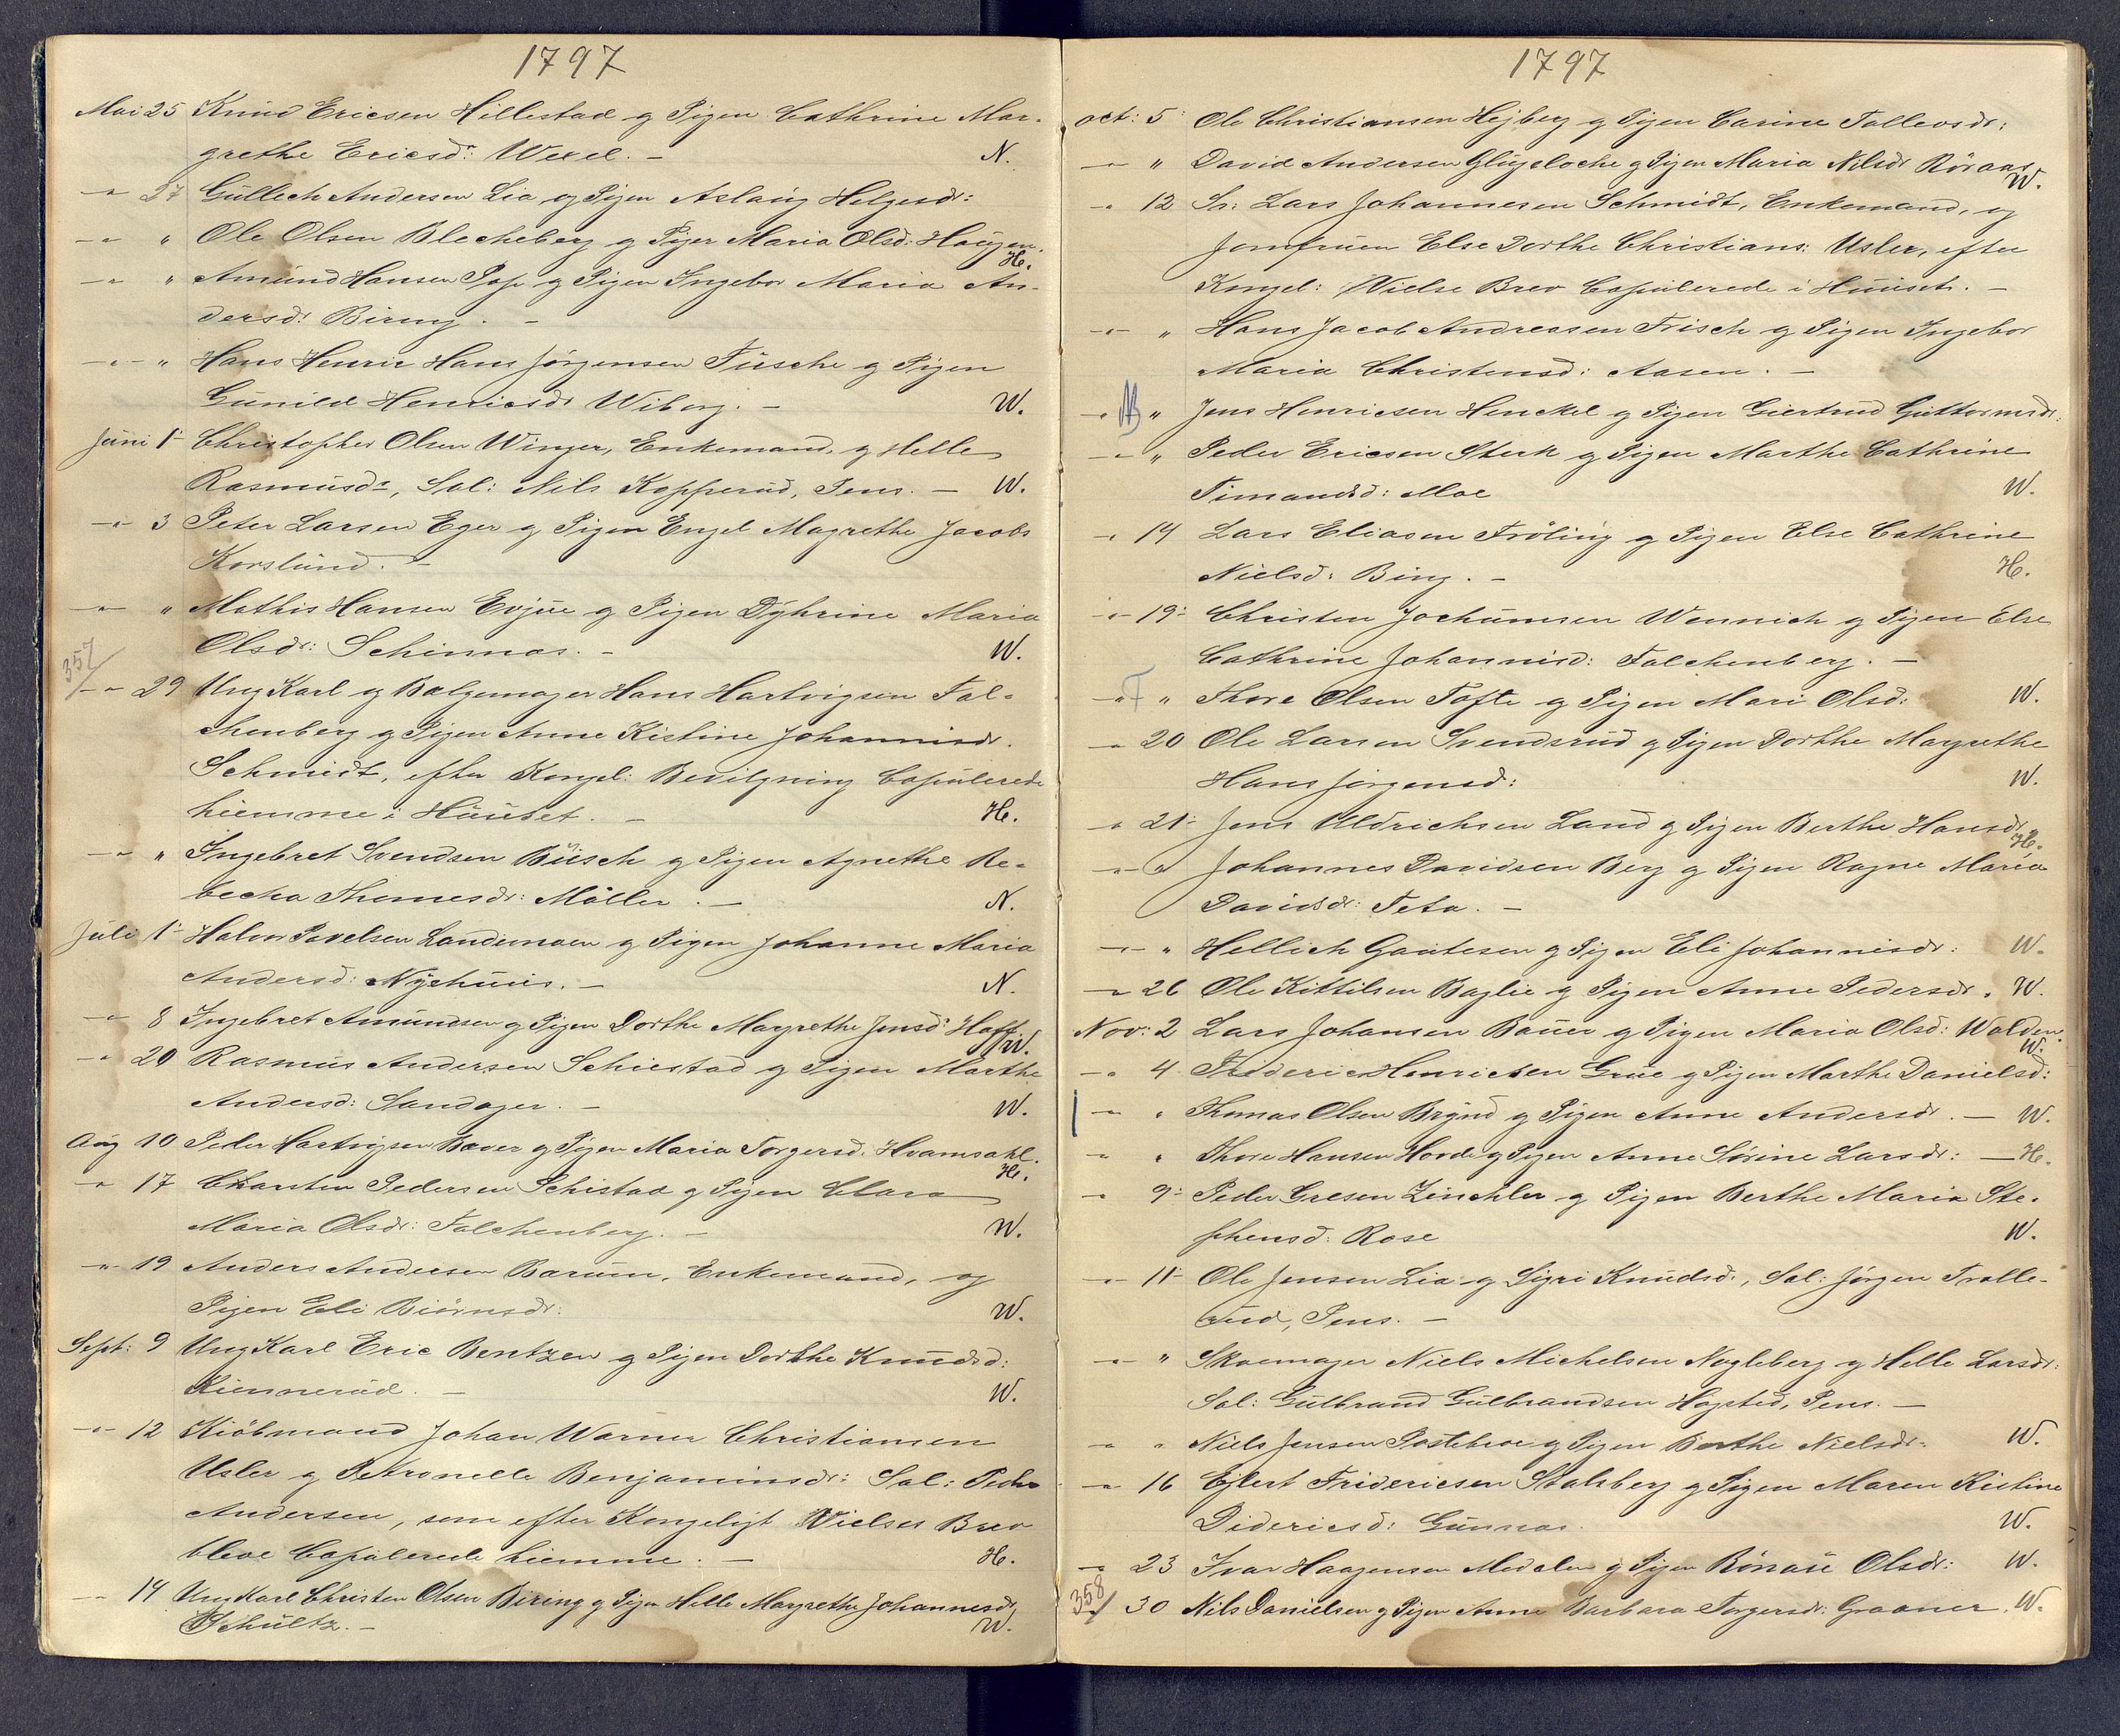 1797
Mai 25 Knud Ericsen Hillestad og Pigen Cathrine Mar-
grethe Ericsd: Wexel. — N.
-"- 27 Gullich Andersen Lia og Pigen Aslaug Helgesdr:
-"- " Ole Olsen Blecheberg og Piger Maria Olsd: Haugen.
H.
-"- " Amund Hansen Pape og Pigen Ingebor Maria An-
dersd: Biring. —
-"- " Hans Henric Hans Jørgensen Fusche og Pigen
Gunild Henricsdr Wiborg. — W.
Juni 1- Christopher Olsen Winger, Enkemand, og Helle
Rasmusdr, Sal: Nils Kopperud, Pens. — W.
-"- 3 Peter Larsen Eger og Pigen Engel Magrethe Jacobs
Korslund. —
-"- " Mathis Hansen Evjue og Pigen Dyhrine Maria
Olsdr: Schinnas. — W.
357
-"- 29 Ung Karl og Bælgemager Hans Hartvigsen Fal-
chenberg og Pigen Anne Kistine Johannisdr.
Schmidt, efter Kongel: Bevilgning Copulerede
hiemme i Huuset. — H.
-"- " Ingebret Svendsen Büsch og Pigen Agnethe Re-
becha Thomesdr: Møller. — N.
Juli 1- Halvor Pavelsen Landemoen og Pigen Johanne Maria
Andersd: Nyehuus. — N.
-"- 8 Ingebret Amundsen og Pigen Dorthe Margrethe Jensd: Hoff
W.
-"- 20 Rasmus Andersen Schiestad og Pigen Marthe
Andersd: Sandager. — W.
Aug 10 Peder Hartvigsen Baver og Pigen Maria Torgersd: Hvamsahl.
H.
-"- 17 Charsten Pedersen Schistad og Pigen Clara
Maria Olsdr: Falchenberg. — W.
-"- 19 Anders Andersen Barum, Enkemand, og
Pigen Eli Biørnsdr: W.
Sept: 9 Ung Karl Eric Bentzen og Pigen Dorthe Knudsd:
Kiennerud. — W.
-"- 12 Kiöbmand Johan Warner Christiansen
Usler og Petronelle Benjaminsdr: Sal: Peder
Andersen, som efter Kongeligt Vielses Brev
bleve Copulerede hiemme. — H.
-"- 14 Ung Karl Christen Olsen Biring og Pigen Helle Margrethe Johannesdr
Schultz. — W.
1797
Oct: 5 Ole Christiansen Hejberg og Pigen Carine Tollevsdr:
-"- " David Andersen Glugslocke og Pigen Maria Nilsdr Röraas
W.
-"- 12 Sr: Lars Johannesen Schmidt, Enkemand, og
Jomfruen Else Dorthe Christians: Usler, efter
Kongel: Vielse Brev Copulerede i Huuset. —
-"- " Hans Jacob Andressen Frisch og Pigen Ingebor
Maria Christensd: Aasen. —
-"- " Jens Henricsen Henckel og Pigen Giertrud Guttormsdr:
-"- " Peder Ericsen Sterk og Pigen Marthe Cathrine
Timandsd: Moe W.
-"- 14 Lars Eliasen Fröling og Pigen Else Cathrine
Nielsd: Bing. — H.
-"- 19- Christen Jochumsen Wennich og Pigen Else
Cathrine Johannisd: Falchenberg. —
-"- " Thore Olsen Tofte og Pigen Mari Olsd: W.
-"- 20 Ole Larsen Svendsrud og Pigen Dorthe Margrethe
Hans Jörgensd: W.
-"- 21- Jens Uldrichsen Land og Pigen Berthe Hansdr
H.
-"- " Johannes Davidsen Berg og Pigen Ragne Maria
Davidsdr: Feta. —
-"- " Hellich Gautesen og Pigen Eli Johannisdr: W.
-"- 26 Ole Kittilsen Baglie og Pigen Anne Pedersdr. W.
Nov: 2 Lars Johansen Bauer og Pigen Maria Olsd: Walden.
W.
-"- 4 Frideric Henricsen Grue og Pigen Marthe Danielsd:
-"- " Thomas Olsen Brynd og Pigen Anne Andersdr. — W.
-"- " Thore Hansen Horde og Pigen Anne Sörine Larsdr: — H.
-"- 9- Peder Gresen Zinchler og Pigen Berthe Maria Ste-
phensd: Rose W.
-"- 11- Ole Jensen Lia og Sigri Knudsd:, Sal: Jørgen Tralle-
rud, Pens. —
-"- " Skoemager Niels Michelsen Nagleberg og Helle Larsdr:
Sal: Gulbrand Gulbrandsen Hagsted, Pens. —
-"- " Niels Jensen Postebroe og Pigen Berthe Nielsdr: W.
-"- 16 Ejlert Fridericsen Stalsberg og Pigen Maren Kistine
Didericsd: Gunnas. W.
-"- 23 Ivar Haagensen Medalen og Pigen Rönaue Olsdr: W.
358
-"- 30 Nils Danielsen og Pigen Anne Barbara Torgersdr: Graaner. W.